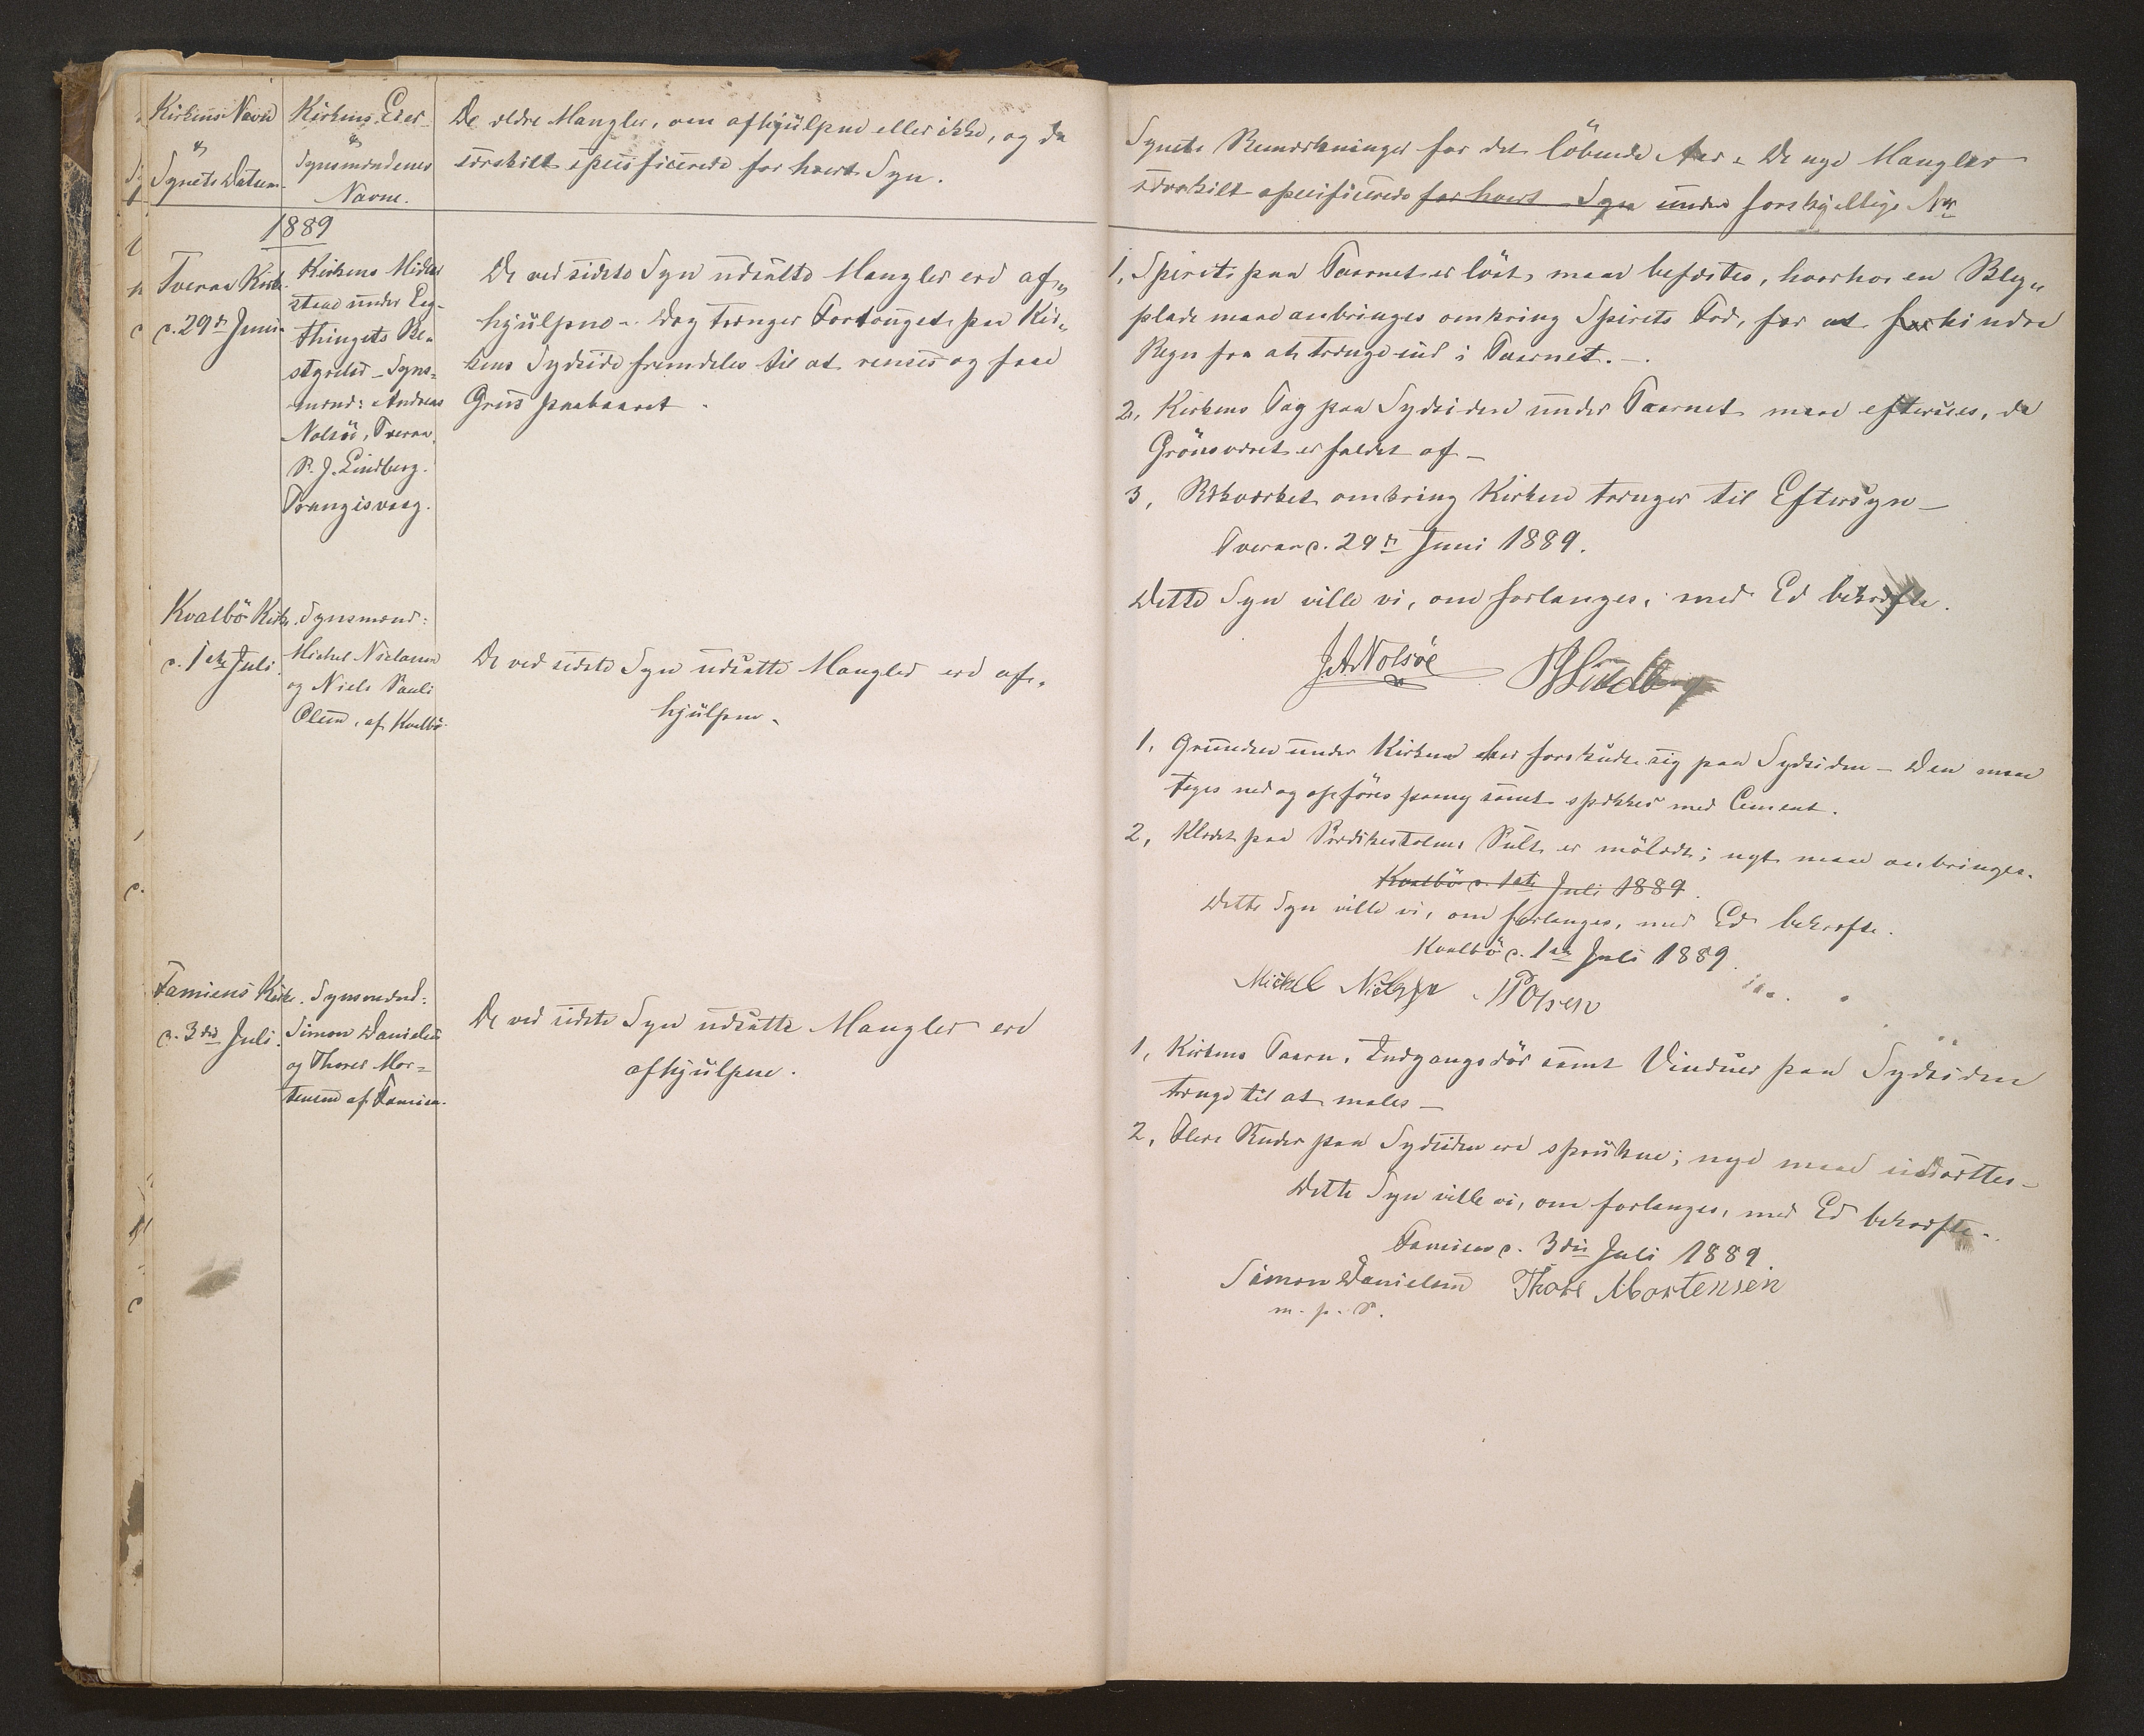 Kirkens Navn
&
Synets Datum.
Kirkens Eier
&
Synsmændenes
Navne.
De ældre Mangler, om afhjülpne eller ikke, og da
særskilt specificerede for hvert Syn.
1889
Tveraa Kirke.
d. 29de Juni.
Kirkens Midler
staae under Lag-
thingets Be-
styrelse – Syns-
mænd: Andreas
Nolsöe, Tveraa,
P. J. Lindberg.
Trangisvaag.
De ved sidste Syn udsatte Mangler ere af-
hjülpne – Dog trænger Fortouget paa Kir-
kens Sydside fremdeles til at renses og faae
Grus paabaaret.
Kvalbö Kirke.
d. 1ste Juli.
Synsmænd:
Michel Nielsen
og Niels Pauli
Olsen, af Kvalbö.
De ved sidste Syn udsatte Mangler ere af-
hjülpne.
Famiens Kirke.
d. 3die Juli.
Synsmænd:
Simon Danielsen
og Thores Mor-
tensen af Famien.
De ved sidste Syn udsatte Mangler ere
afhjülpne.
Synets Bemærkninger for det löbende Aar. De nye Mangler
særskilt specificerede for hvert Syn under forskjellige Nr
1, Spiret paa Taarnet er löst, maae befæstes, hvorhos en Bly-
plade maae anbringes omkring Spirets Fod, for at forhindre
Regn fra at trænge ind i Taarnet. –
2, Kirkens Tag paa Sydsiden under Taarnet maae efterses, da
Grönsværet er faldet af –
3, Rækværket omkring Kirken trænger til Eftersyn –
Tveraa d. 29de Juni 1889.
Dette Syn ville vi, om forlanges, med Ed bekræfte.
J.A. Nolsöe PJLindberg
1, Grunden under Kirken har forskudt sig paa Sydsiden – Den maae
tages ned og opföres paany samt spækkes med Cement.
2, Klædet paa Prædikestolens Pult er mölædt; nyt maae anbringes.
Kvalbö d. 1ste Juli 1889.
Dette Syn ville vi, om forlanges, med Ed bekræfte.
Kvalbö d. 1ste Juli 1889.
Mickel Nielsen NPOlsen
1, Kirkens Taarn, Indgangsdör samt Vinduer paa Sydsiden
trænge til at males –
2, Flere Ruder paa Sydsiden ere sprukne; nye maae indsættes –
Dette Syn ville vi, om forlanges, med Ed bekræfte.
Famien d. 3die Juli 1889
Simon Danielsen Thore Mortensen
m. p. P.